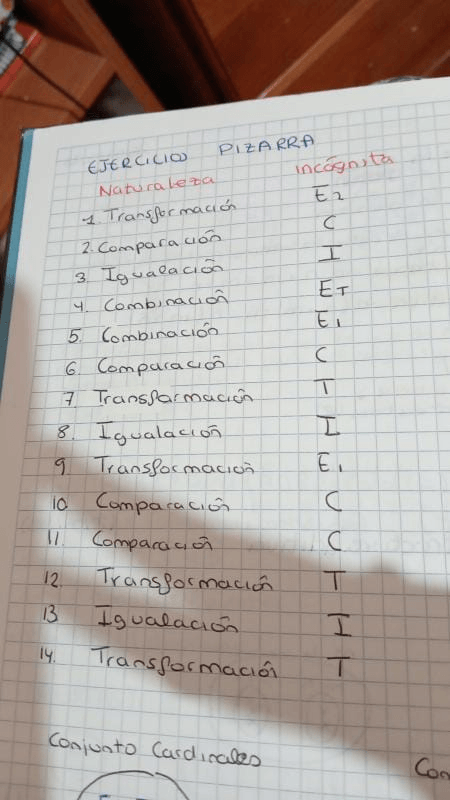 EJERCICIO PIZARRA
Naturaleza incógnita
1. Transformación E2
2. Comparación C
3 Igualación I
4. Combinación ET
5. Combinación E1
6. Comparación C
7. Transformación T
8. Igualación I
9 Transformación E1
10 Comparación C
11. Comparación C
12. Transformación T
13 Igualación I
14. Transformación T
Conjunto Cardinales
Con